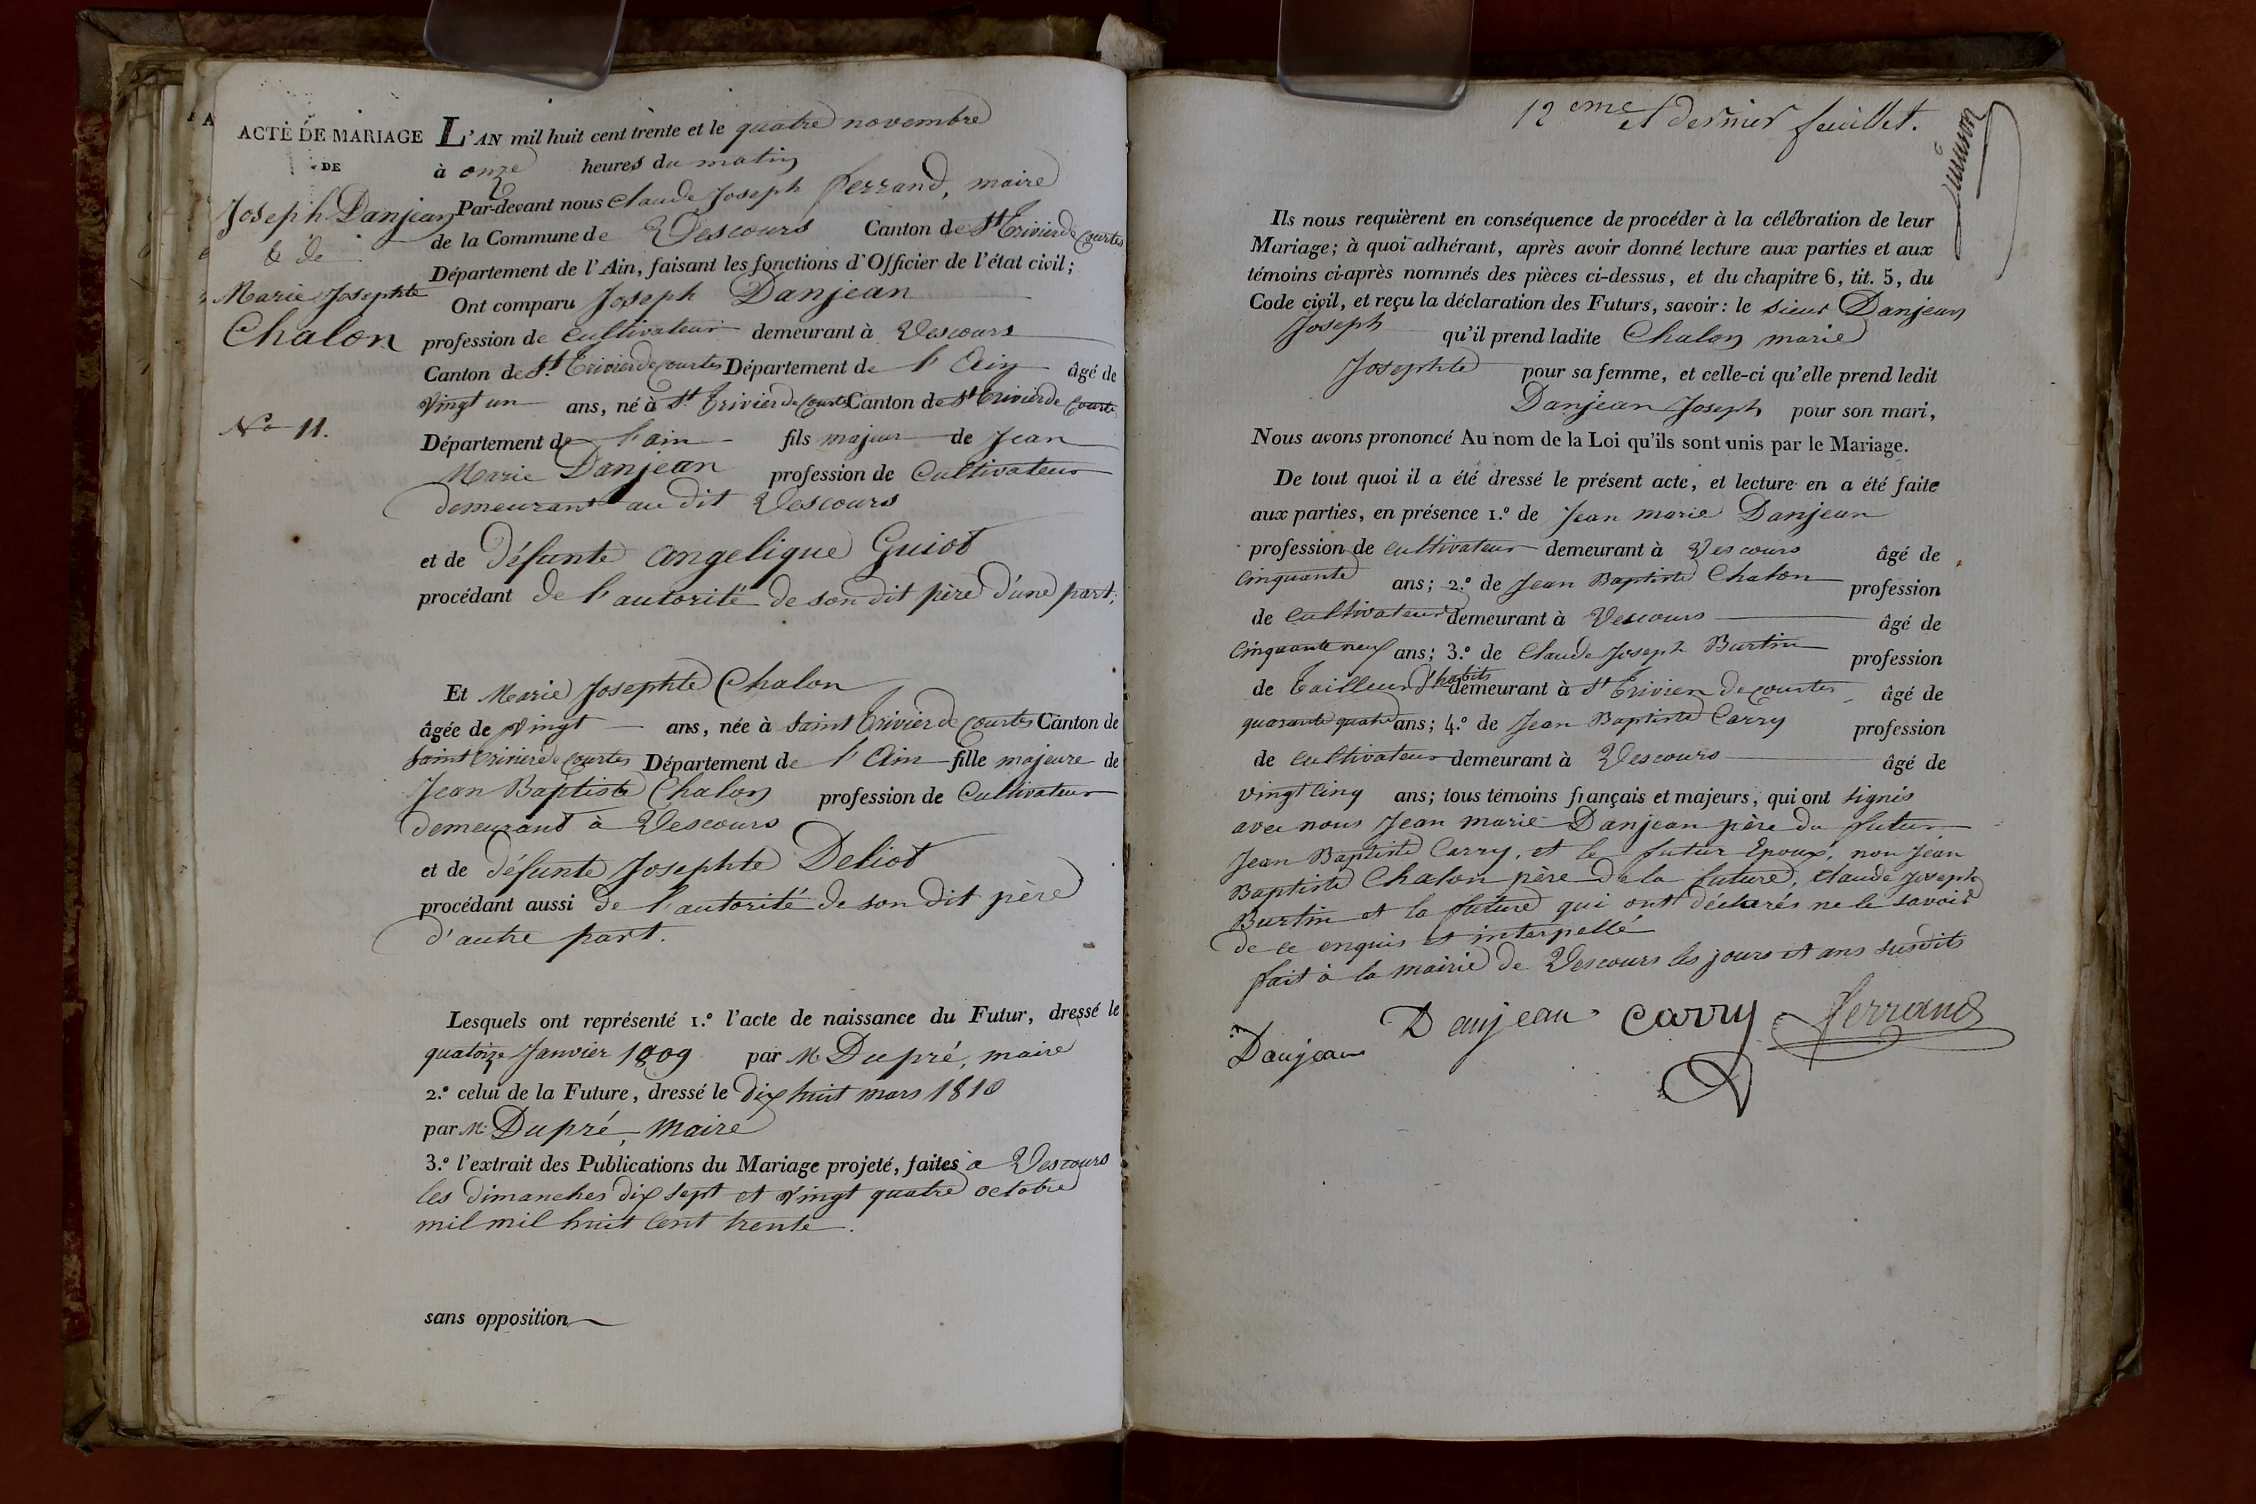 ACTE DE MARIAGE
DE
Joseph Danjean
& de
Marie Josephte
Chalon
No 11.
L'AN mil huit cent trente et le quatre novembre
à onze heures du matin
Par-devant nous Claude Joseph Ferrand, maire
de la Commune de Vescours Canton de St Trivier de Courtes
Département de l'Ain, faisant les fonctions d'Officier de l'état civil;
Ont comparu Joseph Danjean
profession de Cultivateur demeurant à Vescours
Canton de St. Trivier de Courtes Département de l'Ain âgé de
Vingt un ans, né à St. Trivier de Courtes Canton de St Trivier de Courtes
Département de l'ain fils majeur de Jean
Marie Danjean profession de Cultivateur
demeurant au dit Vescours
et de défunte angelique Guiot
procédant de l'autorité de son dit père d'une part;
Et Marie Josephte Chalon
âgée de Vingt ans, née à Saint Trivier de Courtes Canton de
Saint Trivier de Courtes Département de l'Ain fille majeure de
Jean Baptiste Chalon profession de Cultivateur
demeurant à Vescours
et de défunte Josephte Deliot
procédant aussi de l'autorité de son dit père
d'autre part.
Lesquels ont représenté 1.º l'acte de naissance du Futur, dressé le
quatorze Janvier 1809 par M Dupré, maire
2.º celui de la Future, dressé le dix huit mars 1810
par M. Dupré, Maire
3.º l'extrait des Publications du Mariage projeté, faites à Vescours
les dimanches dix sept et vingt quatre octobre
mil mil huit cent trente.
sans opposition
12 eme et dernier feuillet.
Ils nous requièrent en conséquence de procéder à la célébration de leur
Mariage; à quoi adhérant, après avoir donné lecture aux parties et aux
témoins ci-après nommés des pièces ci-dessus, et du chapitre 6, tit. 5, du
Code civil, et reçu la déclaration des Futurs, savoir: le sieur Danjean
Joseph qu'il prend ladite Chalon marie
Josephte pour sa femme, et celle-ci qu'elle prend ledit
Danjean Joseph pour son mari,
Nous avons prononcé Au nom de la Loi qu'ils sont unis par le Mariage.
De tout quoi il a été dressé le présent acte, et lecture en a été faite
aux parties, en présence 1.º de Jean marie Danjean
profession de cultivateur demeurant à Vescours âgé de
Cinquante ans; 2.º de Jean Baptiste Chalon profession
de Cultivateur demeurant à Vescours âgé de
Cinquante neuf ans; 3.º de Claude Joseph Burtin profession
de Tailleur d'habits demeurant à St Trivier de Courtes âgé de
quarante quatre ans; 4.º de Jean Baptiste Carry profession
de Cultivateur demeurant à Vescours âgé de
vingt cinq ans; tous témoins français et majeurs, qui ont signés
avec nous Jean marie Danjean père du futur
Jean Baptiste Carry, et le futur Epoux, non Jean
Baptiste Chalon père de la future, Claude Joseph
Burtin et la future qui ont déclarés ne le savoir
de ce enquis et interpellé
fait à la mairie de Vescours les jours et ans susdits
Danjean Danjean Carry Ferrand